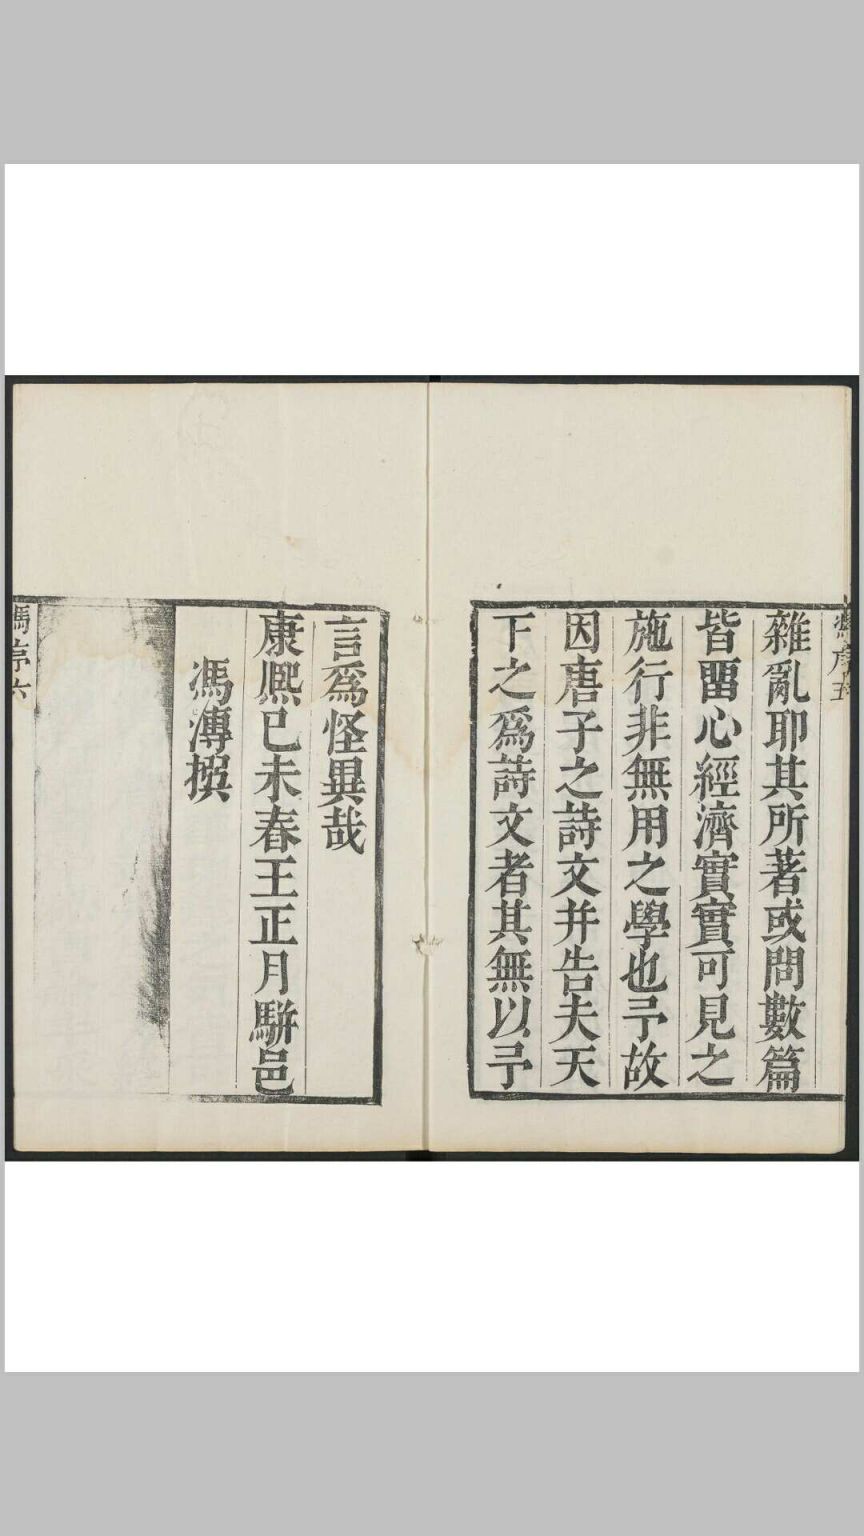 馮序五
雜亂耶其所著或問數篇
皆畱心經濟實實可見之
施行非無用之學也予故
因唐子之詩文并告夫天
下之爲詩文者其無以予
言爲怪異哉
康熈己未春王正月駢邑
馮溥撰
馮序六